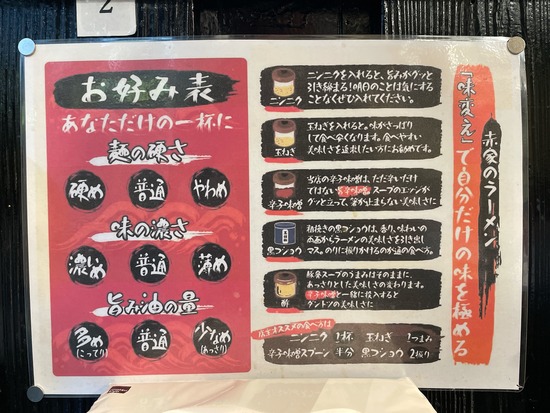 2
お好み表
あなただけの一杯に
麺の硬さ
硬め 普通 やわめ
味の濃さ
濃いめ 普通 薄め
旨み油の量
多め(こってり) 普通 少なめ(あっさり)
ニンニク
ニンニクを入れると、旨みがグッと
引き締まる!明日のことは気にする
ことなくぜひ入れてください。
玉ねぎ
玉ねぎを入れると、味がさっぱり
して食べやすくなります。食べやすい
美味しさを追求したい方にお勧めです。
辛子味噌
当店の辛子味噌は、ただ辛いだけ
ではない旨辛味噌。スープのエッジが
グッと立って、箸が止まらない美味しさに
黒コショウ
粗挽きの黒コショウは、香り、味わいの
両面からラーメンの美味しさを引き出し
マス。のりに振りかけるのが通の食べ方。
酢
豚骨スープのうまみはそのままに、
あっさりとした美味しさの変わります。
辛子味噌と一緒に投入すると
ダントツの美味しさに。
店主オススメの食べ方は
ニンニク 1杯 玉ねぎ 1つまみ
辛子味噌スプーン 半分 黒コショウ 2振り
赤家のラーメン
「味変え」で自分だけの味を極める